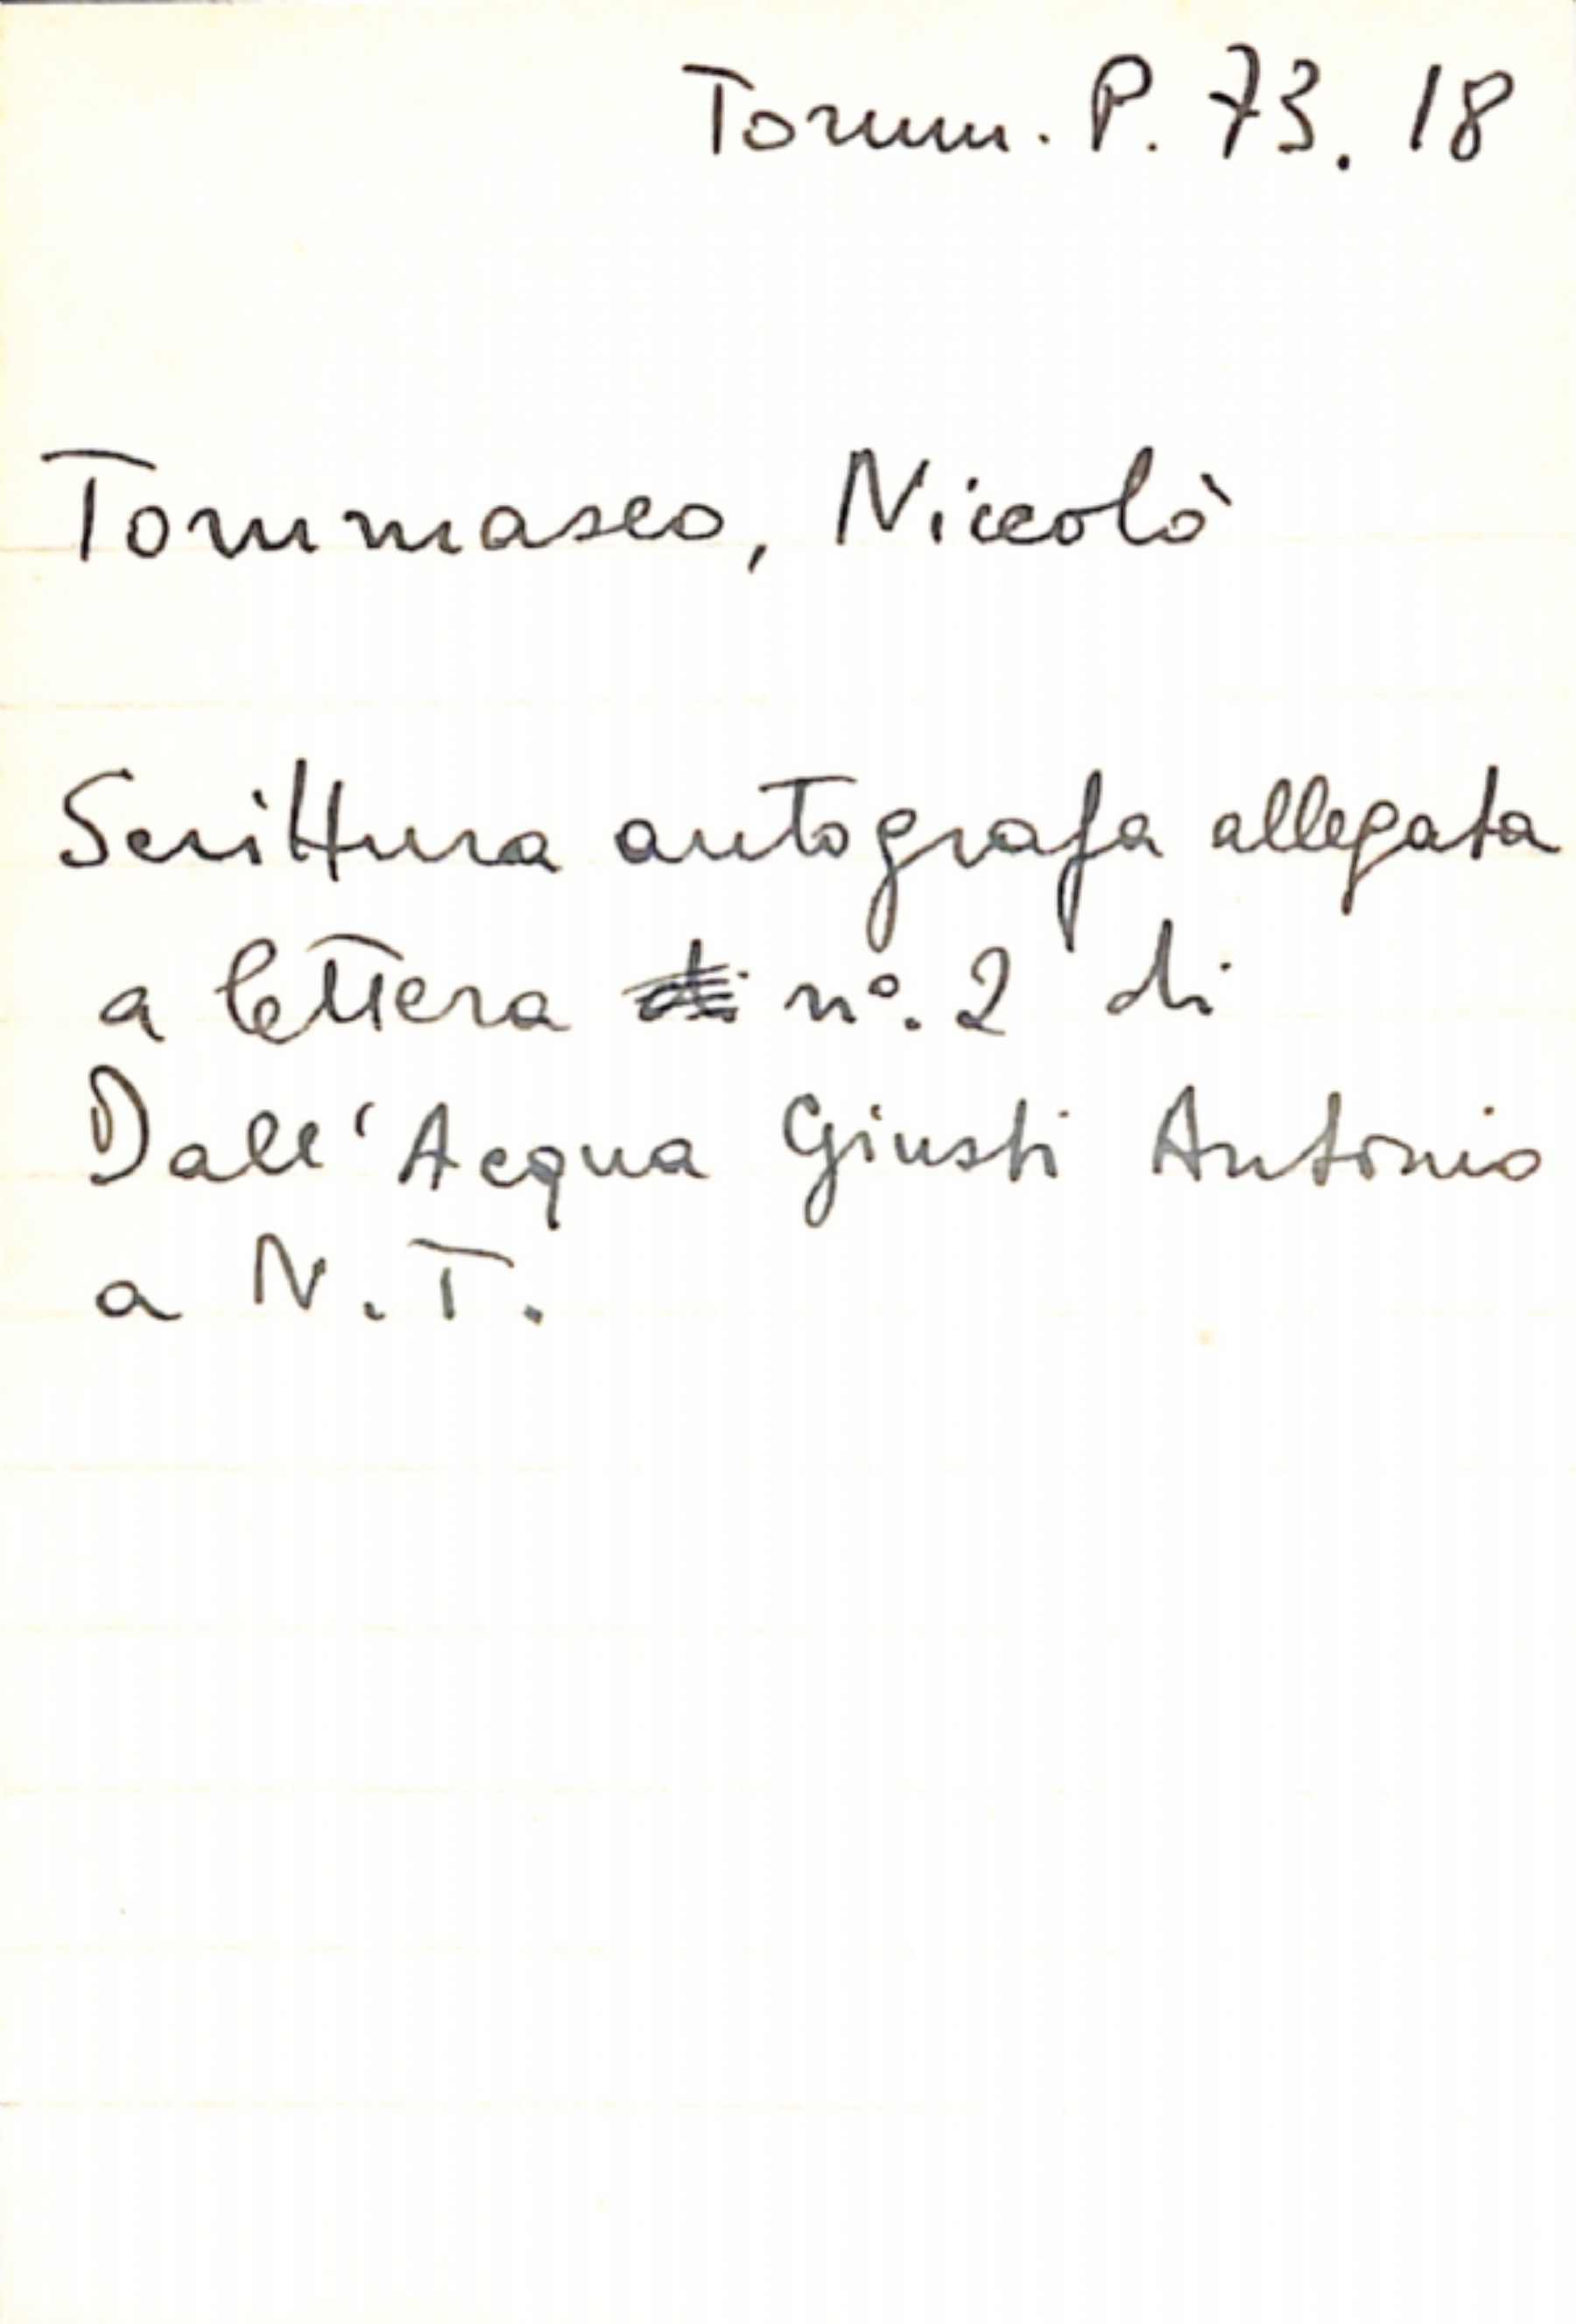 Tomm. P. 73. 18
Tommaseo, Niccolò
Scrittura autografa allegata
a lettera di n°. 2 di
Dall'Acqua Giusti Antonio
a N. T.